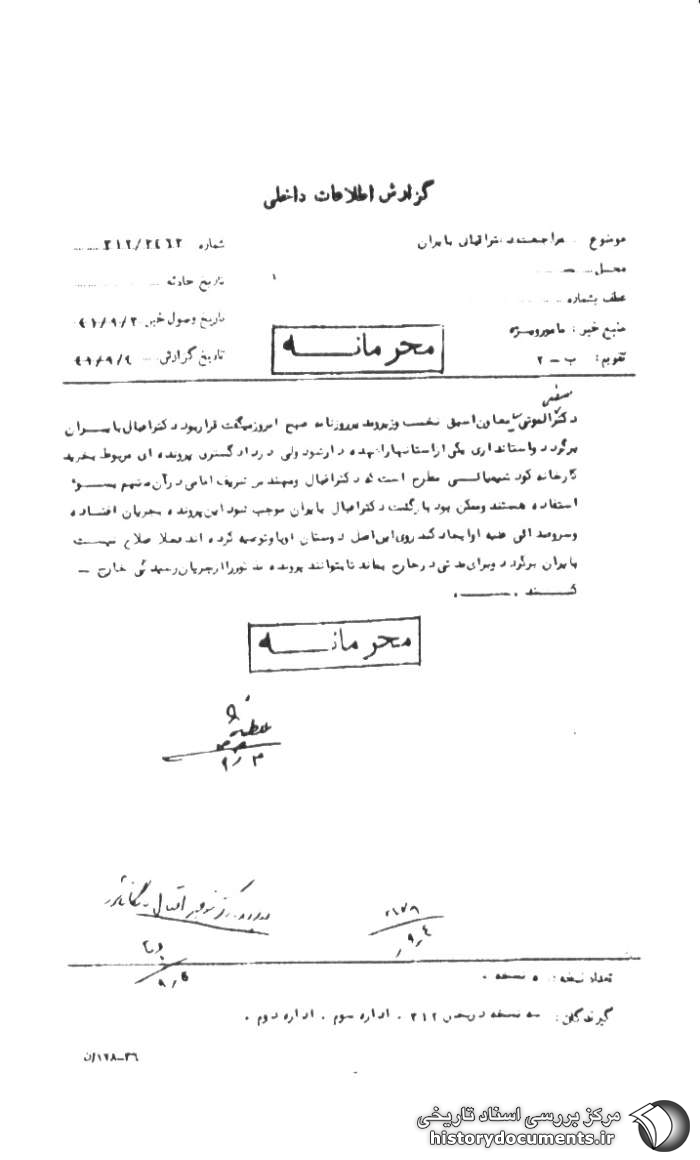 گزارش اطلاعات داخلی
موضوع مراجعت دکتر اقبال بایران
شماره ۳۱۲/۲۴۶۲
محل
تاریخ حادثه
عطف بشماره
تاریخ وصول خبر ۴۱/۹/۳
منبع خبر : مامور ویژه
تاریخ گزارش ۴۱/۹/۴
تقویم : ب - ۲
محرمانه
دکتر الموتی معاون اسبق نخست وزیر و مدیر روزنامه صبح امروز میگفت قرار بود دکتر اقبال بایران
برگردد و استانداری یکی از استانها را بعهده دار شود ولی در دادگستری پرونده ای مربوط بخرید
کارخانه کود شیمیائی مطرح است که دکتر اقبال و مهندس شریف امامی در آن متهم بسوء
استفاده هستند و ممکن بود بازگشت دکتر اقبال بایران موجب شود این پرونده بجریان افتاده
و سروصدائی علیه او ایجاد کند روی این اصل دوستان او باو توصیه کرده اند فعلا صلاح نیست
بایران برگردد و برای مدتی در خارج بماند تا بتوانند پرونده مذکور را از جریان رسیدگی خارج -
کنند .
محرمانه
۹/۳
۹/۴
۹/۴
تعداد نسخه : ۵ نسخه .
گیرندگان : سه نسخه در بخش ۳۱۲ . اداره سوم . اداره دوم .
۳۶-۱۲۸/ن
مرکز بررسی اسناد تاریخی
historydocuments.ir